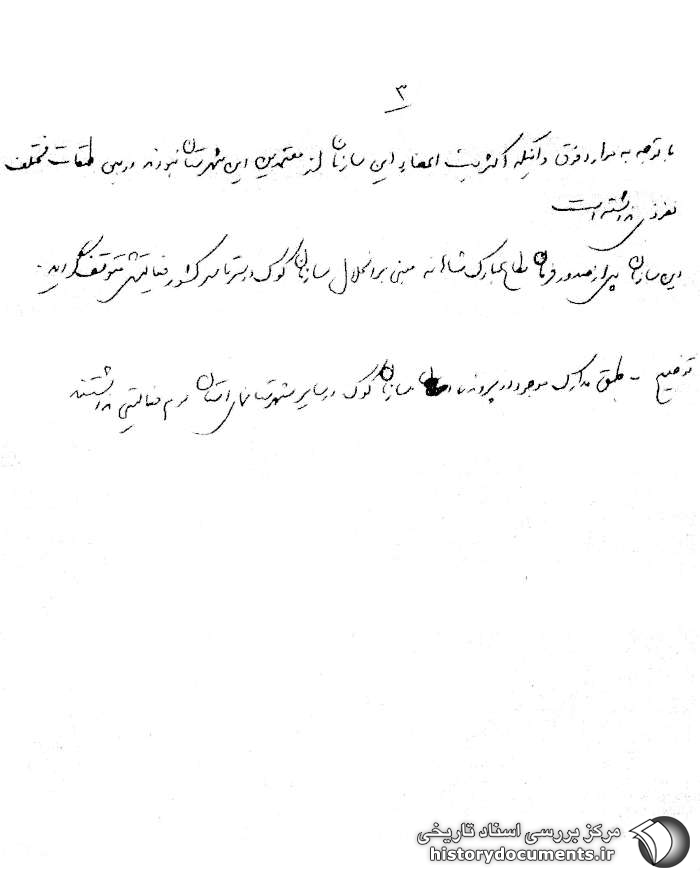 ۳
با توجه به موارد فوق و اینکه اکثریت اعضاء این سازمان از معتمدین این شهرستان نبودند و بین طبقات مختلف
نفوذی نداشته است
این سازمان پس از صدور فرمان مطاع مبارک شاهانه مبنی بر انحلال سازمان کوک در سرتاسر کشور فعالیتش متوقف گردید.
توضیح - طبق مدارک موجود در پرونده سازمان کوک در سایر شهرستانهای استان هم فعالیتی نداشتند
مرکز بررسی اسناد تاریخی
historydocuments.ir